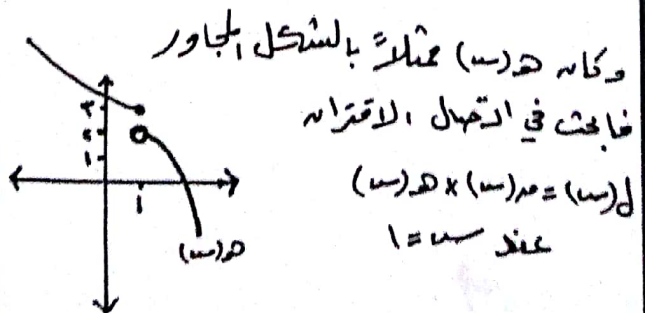 وكان هـ(س) ممثلاً بالشكل المجاور
فابحث في اتصال الاقتران
ل(س) = م(س) × هـ(س)
عند س = ١
٣
٢
١
١
هـ(س)